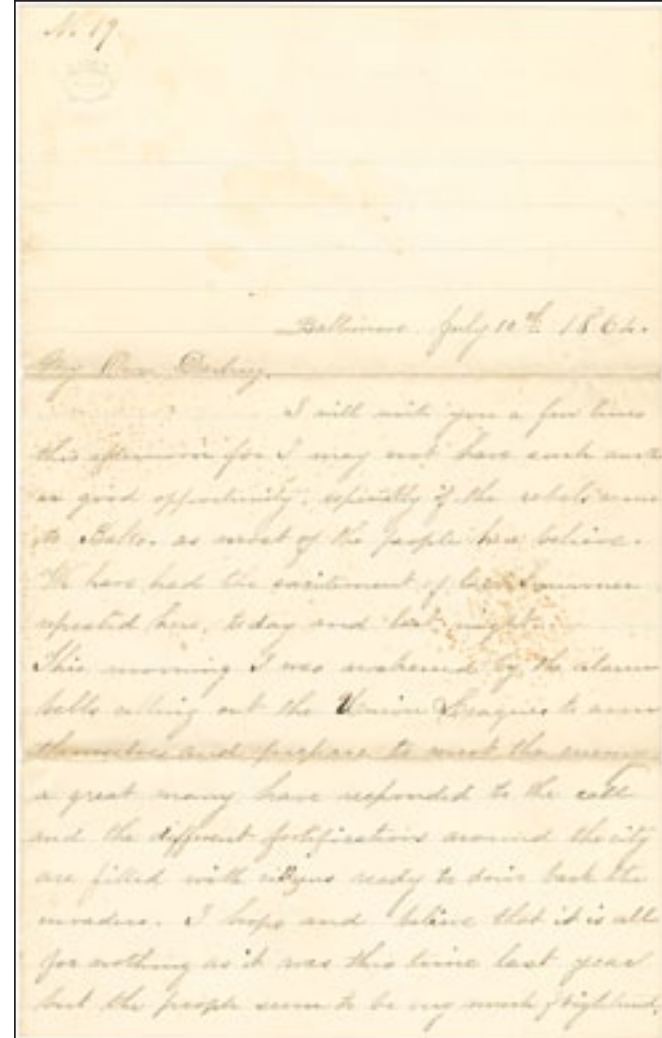 No 19.
Baltimore. July 10th 1864.
My Own Darling,
I will write you a few lines
this afternoon for I may not have such
a good opportunity, especially if the rebels come
to Balto. as most of the people here believe.
We have had the excitement of last summer
repeated here, today and last night.
This morning I was awakened by the alarm
bells calling out the Union Leagues to arm
themselves and prepare to meet the enemy,
a great many have responded to the call
and the different fortifications around the city
are filled with citizens ready to drive back the
invaders. I hope and believe that it is all
for nothing as it was this time last year
but the people seem to be very much frightened,